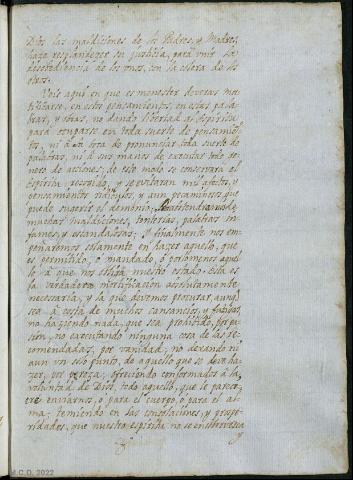 Dios las maldiciones de los Padres, y Madres,
haze resplandezer su justicia, para unir la
desobediencia de los unos, con la colera de los
otros.
Veis aqui en que es menester deveras mor
tificarse, en estos pensamientos, en estas pala
bras, y obras, no dando libertad al espiritu
para ocuparse en toda suerte de pensamien
tos, ni a la boca de pronunciar toda suerte de
palabras, ni a sus manos de executar todo ge
nero de acciones; de este modo se conservara el
Espiritu recogido, y se evitaran mil afectos, y
pensamientos ridiculos, y aun pecaminosos que
puede sugerir el demonio,
muchas maldiciones, tonterias, palabras in
fames, y escandalosas; y finalmente nos em
peñaremos solamente en hazer aquello, que
es permitido, o mandado, o por lo menos aquel
lo a que nos obliga nuestro estado. Esta es
la verdadera mortificacion absolutamente
necessaria, y la que devemos procurar, aunq.
sea a costa de muchos cansancios, y fatigas,
no haziendo nada, que sea prohibido, por pa
sion, no executando ninguna cosa de las re
comendadas, por vanidad; no dexando ni
aun un solo punto, de aquello que se deve ha
zer, por pereza; ofreciendo conformados a la
voluntad de Dios, todo aquello, que le parecie
re enviarnos, o para el cuerpo, o para el al
ma; temiendo en las consolaciones, y prospe
ridades, que nuestro espiritu no se ensobervezca
y
J.C.D. 2022